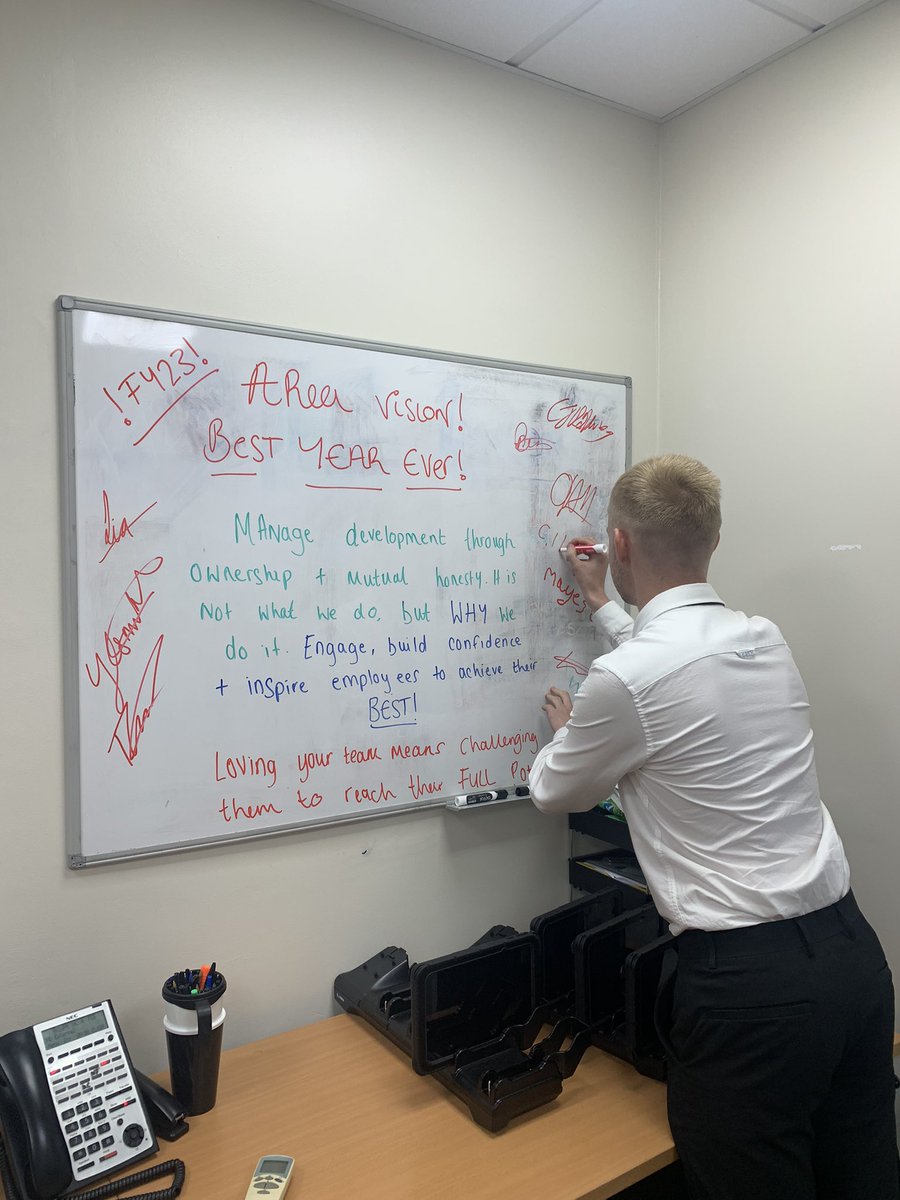 !FY23!
AReer VISION!
BEST YEAR Ever!
MANage development through
OWNership + MUtual honesty. It is
Not what we do, but WHY we
do it. Engage, build confidence
+ inspire employees to achieve their
BEST!
Loving your team Means Challenging
them to reach their FULL Pot
Lia
Mayes
NEC